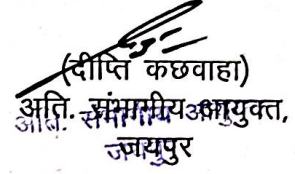 (दीप्ति कछवाहा)
अति. संभागीय आयुक्त,
जयपुर